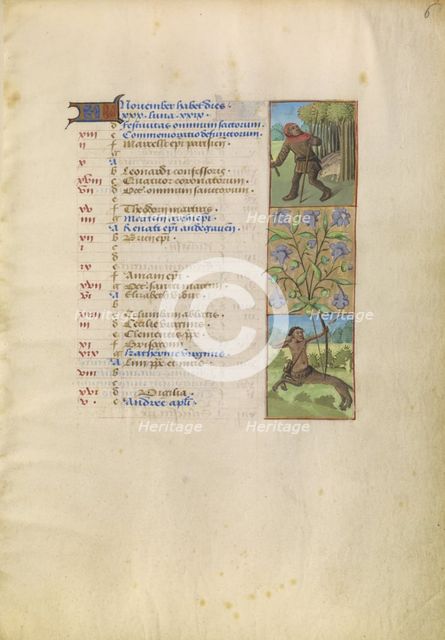 6
November habet dies
xxx. luna xxix.
d Festivitas omnium sanctorum.
xiii e Commemoratio defunctorum.
ii f Marcelli epi parisien
g
x A
b Leonardi confessoris.
xviii c Quatuor coronatorum.
vii d Oct. omnium sanctorum.
e
xv f Theodori martiris
iiii g Martini archiepi.
A Renati epi andegaven
xii b Bricii epi.
i c
d
ix e
f Aniani epi.
xvii g Oct. sancti martini
vi A Elizabeth vidue.
b
xiiii c Columbani abbatis
iii d Cecilie virginis
e Clementis ppe.
xi f Grisogoni
xix g Katherine virginis.
A Lini ppe et mris.
viii b
c
xvi d Vigilia
v. e Andree apli.
Heritage
Heritage
Heritage
Heritage
Heritage
Heritage